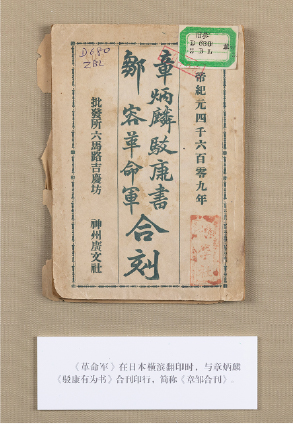 D680
ZBL
D 680
Z B L
帝紀元四千六百零九年
章炳麟駁康書
鄒容革命軍
合刻
批發所六馬路吉慶坊
神州廣文社
《革命军》在日本横滨翻印时，与章炳麟
《驳康有为书》合刊印行，简称《章邹合刊》。